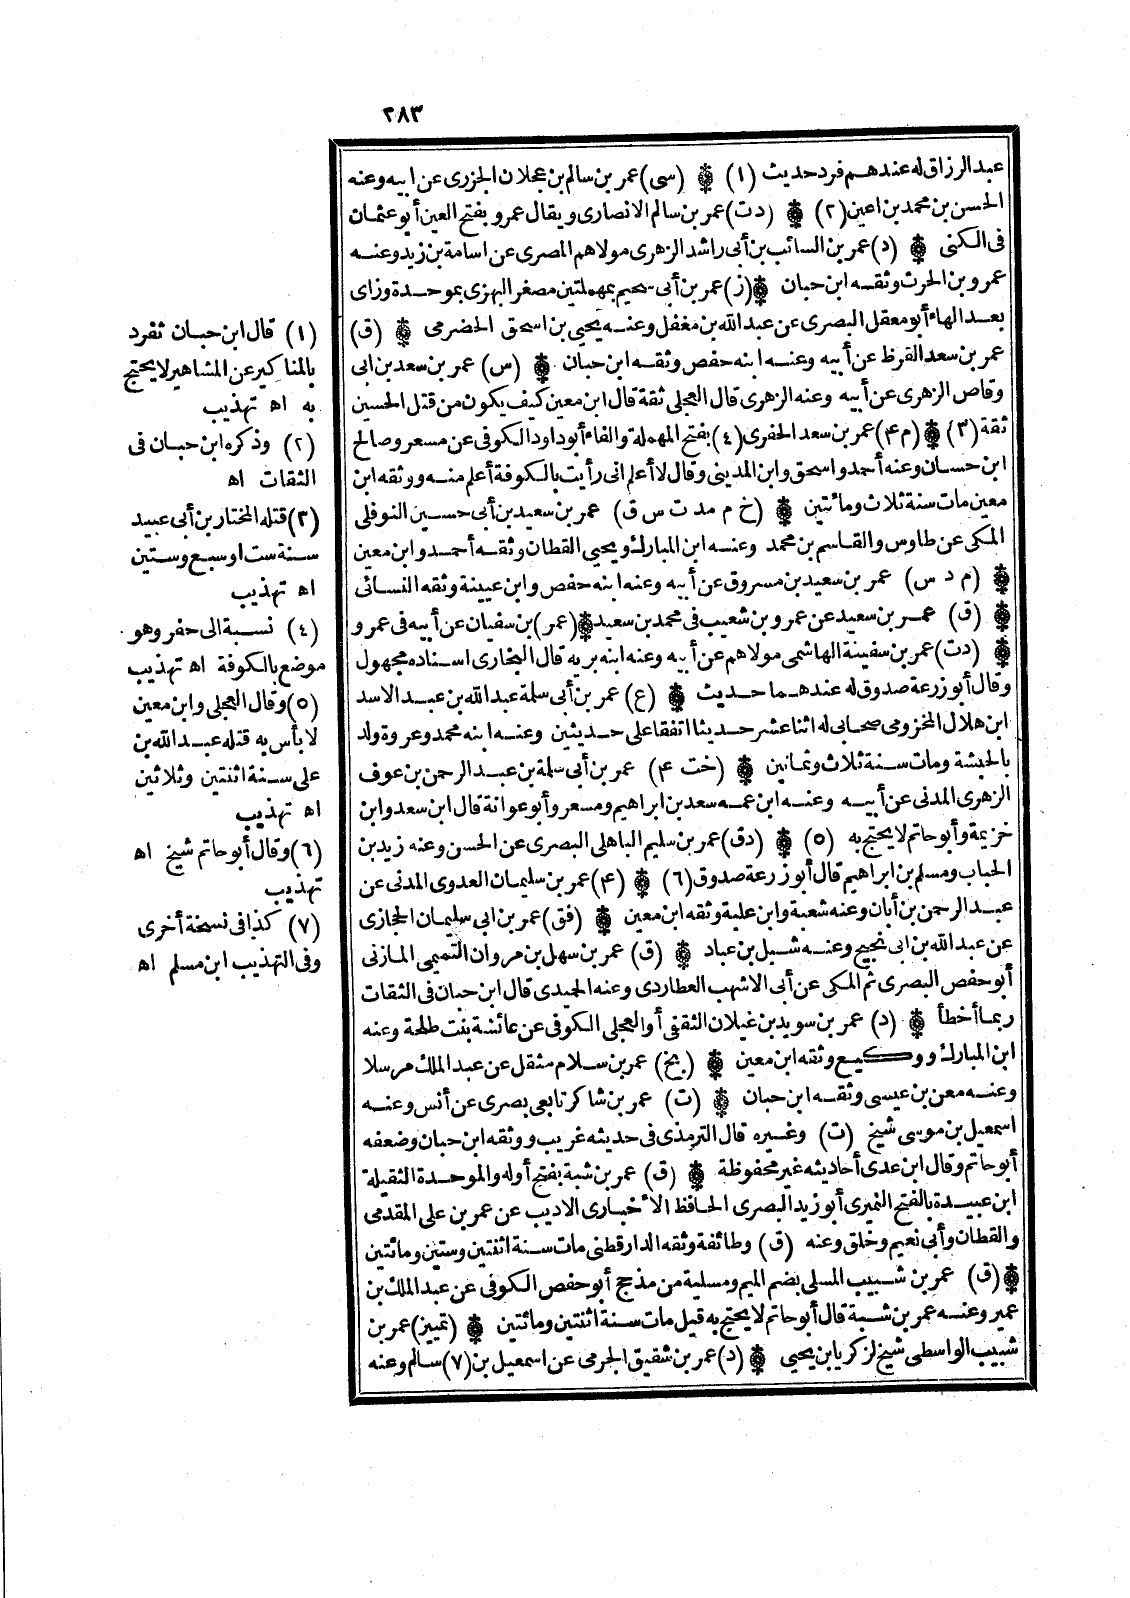 ٢٨٣
عبد الرزاق له عندهم فرد حديث (١) ۞ (سى) عمر بن سالم بن عجلان الجزرى عن ابيه وعنه
الحسن بن محمد بن اعين (٢) ۞ (دت) عمر بن سالم الانصارى ويقال عمرو بفتح العين أبو عثمان
فى الكنى ۞ (د) عمر بن السائب بن أبى راشد الزهرى مولاهم المصرى عن اسامة بن زيد وعنه
عمرو بن الحرث وثقه ابن حبان ۞ (ز) عمر بن أبى سحيم بمهملتين مصغر البهزى بموحدة وزاى
بعد الهاء أبو معقل البصرى عن عبد الله بن مغفل وعنه يحيى بن اسحق الحضرمى ۞ (ق)
عمر بن سعد القرظ عن أبيه وعنه ابنه حفص وثقه ابن حبان ۞ (س) عمر بن سعد بن ابى
وقاص الزهرى عن أبيه وعنه الزهرى قال العجلى ثقة قال ابن معين كيف يكون من قتل الحسين
ثقة (٣) ۞ (م ۴) عمر بن سعد الحفرى (٤) بفتح المهملة والفاء أبو داود الكوفى عن مسعر وصالح
ابن حسان وعنه أحمد واسحق وابن المدينى وقال لا أعلم انى رأيت بالكوفة أعلم منه ووثقه ابن
معين مات سنة ثلاث ومائتين ۞ (خ م مد ت س ق) عمر بن سعيد بن أبى حسين النوفلى
المكى عن طاوس والقاسم بن محمد وعنه ابن المبارك ويحيى القطان وثقه أحمد وابن معين
۞ (م د س) عمر بن سعيد بن مسروق عن أبيه وعنه ابنه حفص وابن عيينة وثقه النسائى
۞ (ق) عمر بن سعيد عن عمرو بن شعيب فى محمد بن سعيد ۞ (عمر) بن سفيان عن أبيه فى عمرو
۞ (دت) عمر بن سفينة الهاشمى مولاهم عن أبيه وعنه ابنه بريه قال البخارى اسناده مجهول
وقال أبو زرعة صدوق له عندهما حديث ۞ (ع) عمر بن أبى سلمة عبد الله بن عبد الاسد
ابن هلال المخزومى صحابى له اثنا عشر حديثا اتفقا على حديثين وعنه ابنه محمد وعروة ولد
بالحبشة ومات سنة ثلاث وثمانين ۞ (خت ۴) عمر بن أبى سلمة بن عبد الرحمن بن عوف
الزهرى المدنى عن أبيه وعنه ابن عمه سعد بن ابراهيم ومسعر وأبو عوانة قال ابن سعد وابن
خزيمة وأبو حاتم لا يحتج به (٥) ۞ (دق) عمر بن سليم الباهلى البصرى عن الحسن وعنه زيد بن
الحباب ومسلم بن ابراهيم قال أبو زرعة صدوق (٦) ۞ (۴) عمر بن سليمان العدوى المدنى عن
عبد الرحمن بن أبان وعنه شعبة وابن علية وثقه ابن معين ۞ (فق) عمر بن ابى سليمان الحجازى
عن عبد الله بن ابى نجيح وعنه شبل بن عباد ۞ (ق) عمر بن سهل بن مروان التميمى المازنى
أبو حفص البصرى ثم المكى عن أبى الاشهب العطاردى وعنه الحميدى قال ابن حبان فى الثقات
ربما أخطأ ۞ (د) عمر بن سويد بن غيلان الثقفى أو العجلى الكوفى عن عائشة بنت طلحة وعنه
ابن المبارك ووكيع وثقه ابن معين ۞ (بخ) عمر بن سلام مثقل عن عبد الملك مرسلا
وعنه معن بن عيسى وثقه ابن حبان ۞ (ت) عمر بن شاكر تابعى بصرى عن أنس وعنه
اسمعيل بن موسى شيخ (ت) وغيره قال الترمذى فى حديثه غريب ووثقه ابن حبان وضعفه
أبو حاتم وقال ابن عدى أحاديثه غير محفوظة ۞ (ق) عمر بن شبة بفتح أوله والموحدة الثقيلة
ابن عبيدة بالفتح النميرى أبو زيد البصرى الحافظ الأخبارى الاديب عن عمر بن على المقدمى
والقطان وأبى نعيم وخلق وعنه (ق) وطائفة وثقه الدارقطنى مات سنة اثنتين وستين ومائتين
۞ (ق) عمر بن شبيب المسلى بضم الميم ومسلية من مذحج أبو حفص الكوفى عن عبد الملك بن
عمير وعنه عمر بن شبة قال أبو حاتم لا يحتج به قيل مات سنة اثنتين ومائتين ۞ (تمييز) عمر بن
شبيب الواسطى شيخ لزكريا بن يحيى ۞ (د) عمر بن شقيق الجرمى عن اسمعيل بن (٧) سالم وعنه
(١) قال ابن حبان تفرد
بالمناكير عن المشاهير لا يحتج
به اه تهذيب
(٢) وذكره ابن حبان فى
الثقات اه
(٣) قتله المختار بن أبى عبيد
سنة ست او سبع وستين
اه تهذيب
(٤) نسبة الى حفر وهو
موضع بالكوفة اه تهذيب
(٥) وقال العجلى وابن معين
لا بأس به قتله عبد الله بن
على سنة اثنتين وثلاثين
اه تهذيب
(٦) وقال أبو حاتم شيخ اه
تهذيب
(٧) كذا فى نسخة أخرى
وفى التهذيب ابن مسلم اه